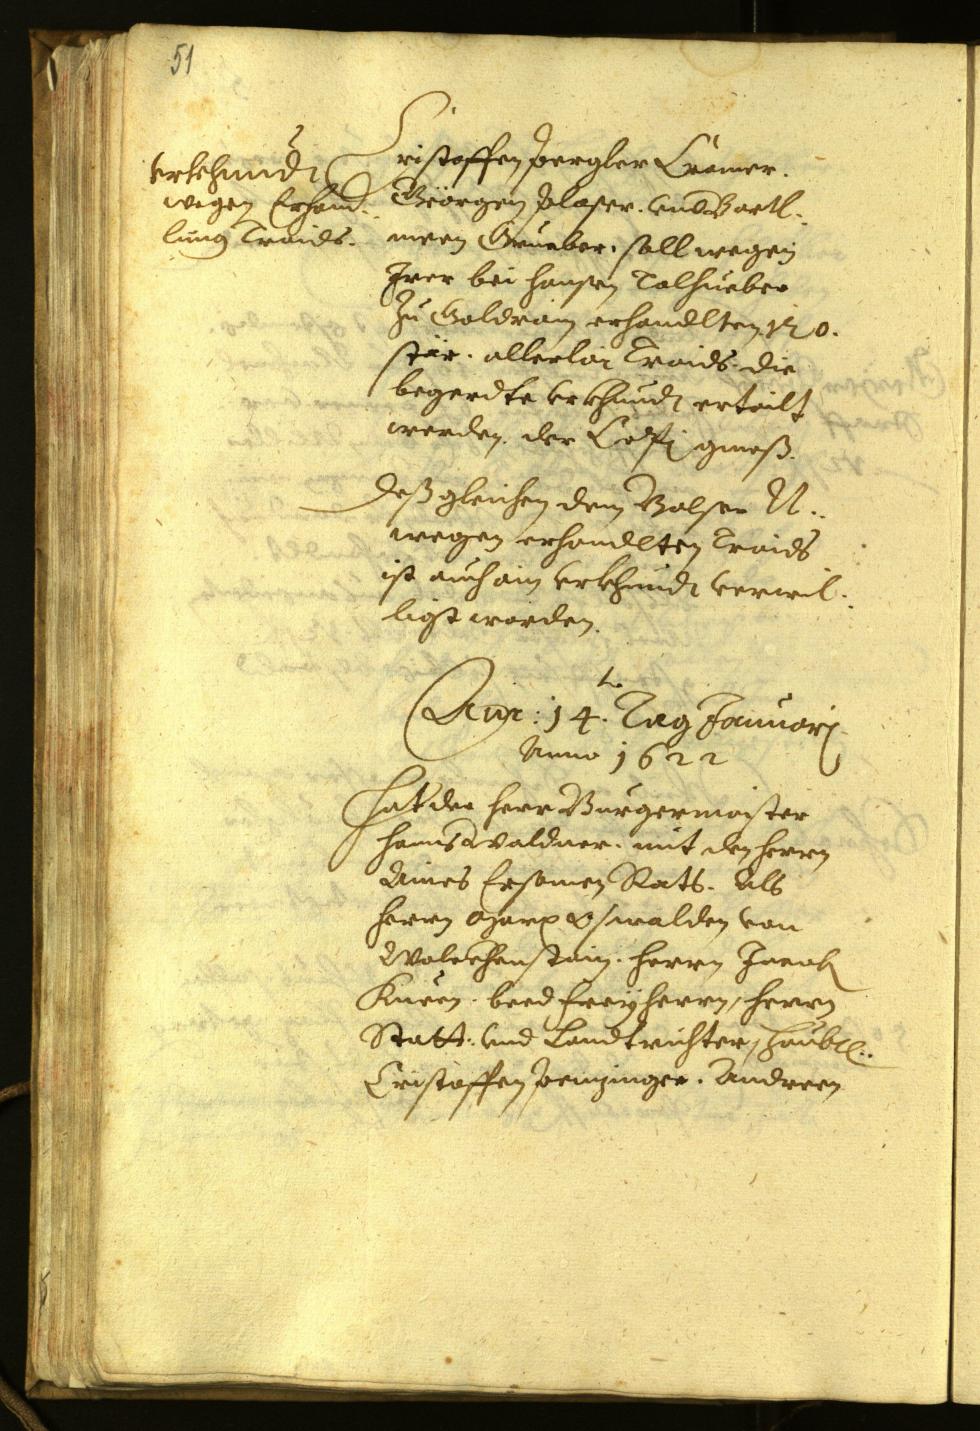 51
Urkhundt
wegen Erhand-
lung Traids.
Cristoffen Pergler Cramer.
Geörgen Plaser. und Bartl-
meen Grueber. soll wegen
Irer bei Hansen Talhueber
Zu Goldrain erhandlten 120.
stär. allerlai Traids. die
begerdte Urkhundt ertailt
werden. der Copi gmeß.
Deßgleichen dem Balser N.
wegen erhandlten Traids
ist auch ain Urkhundt verwil-
ligt worden.
Am: 14.te Tag Januarii
Anno 1622
Hat der Herr Burgermaister
Hanns Waldner. mit den Herrn
Aines Ersamen Rats. Als
Herrn Marx Oswalden von
Wolckhenstain. Herrn Jacob
Kuen. beed Freyherrn, Herrn
Statt: und Landtrichter,
Cristoffen Penzinger. Andreen